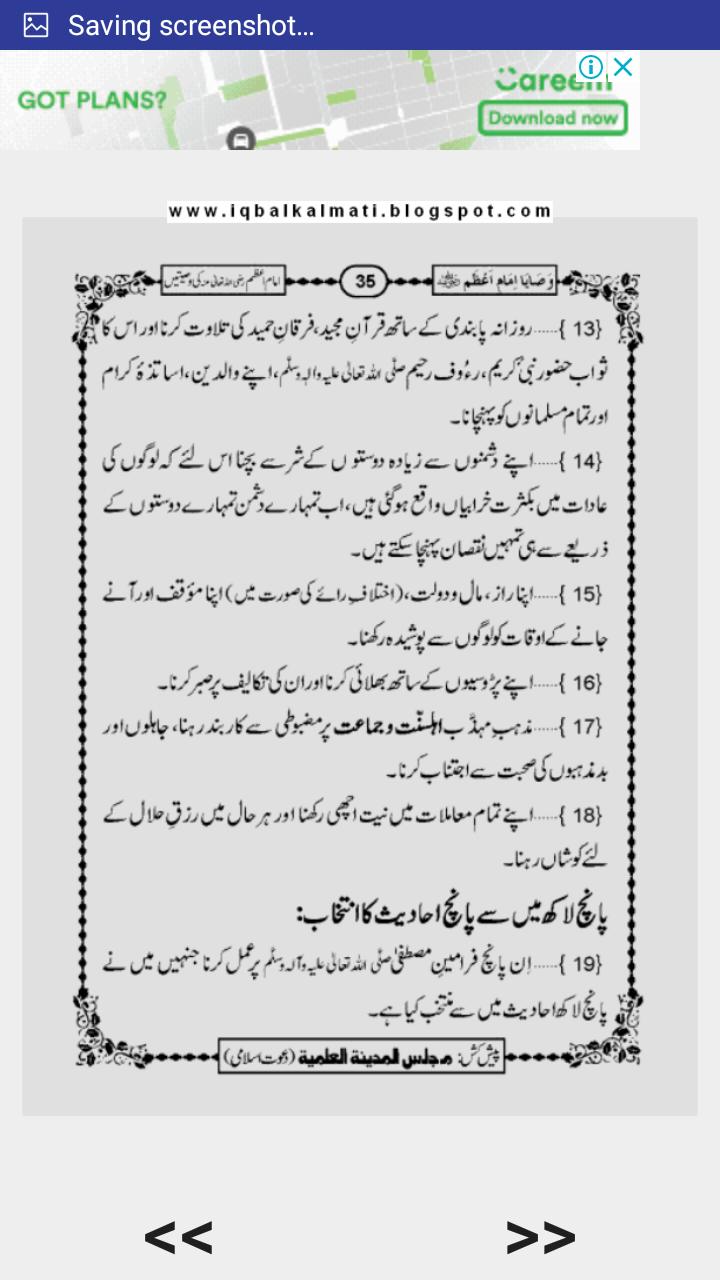 Saving screenshot...
GOT PLANS?
Careem
Download now
www.iqbalkalmati.blogspot.com
وَصَایَا اِمَام اَعْظَم
35
امام اعظم رضی اللہ تعالیٰ عنہ کی وصیتیں
{13}......روزانہ پابندی کے ساتھ قرآنِ مجید،فرقانِ حمید کی تلاوت کرنا اور اس کا
ثواب حضور نبیٔ کریم،رءُوف رحیم صلَّی اللہ تعالیٰ علیہ والہٖ وسلَّم،اپنے والدین،اساتذۂ کرام
اور تمام مسلمانوں کو پہنچانا۔
{14}......اپنے دشمنوں سے زیادہ دوستوں کے شر سے بچنا اس لئے کہ لوگوں کی
عادات میں بکثرت خرابیاں واقع ہوگئی ہیں،اب تمہارے دشمن تمہارے دوستوں کے
ذریعے سے ہی تمہیں نقصان پہنچا سکتے ہیں۔
{15}......اپنا راز، مال و دولت،(اختلافِ رائے کی صورت میں) اپنا مؤقف اور آنے
جانے کے اوقات کو لوگوں سے پوشیدہ رکھنا۔
{16}......اپنے پڑوسیوں کے ساتھ بھلائی کرنا اور ان کی تکالیف پر صبر کرنا۔
{17}......مذہبِ مہذَّب اہلسنّت و جماعت پر مضبوطی سے کاربند رہنا، جاہلوں اور
بد مذہبوں کی صحبت سے اجتناب کرنا۔
{18}......اپنے تمام معاملات میں نیت اچھی رکھنا اور ہر حال میں رزقِ حلال کے
لئے کوشاں رہنا۔
پانچ لاکھ میں سے پانچ احادیث کا انتخاب:
{19}......اِن پانچ فرامینِ مصطفیٰ صلَّی اللہ تعالیٰ علیہ وآلہ وسلَّم پر عمل کرنا جنہیں میں نے
پانچ لاکھ احادیث میں سے منتخب کیا ہے۔
پیش کش: مجلس المدينة العلمية (دعوت اسلامی)
<< >>